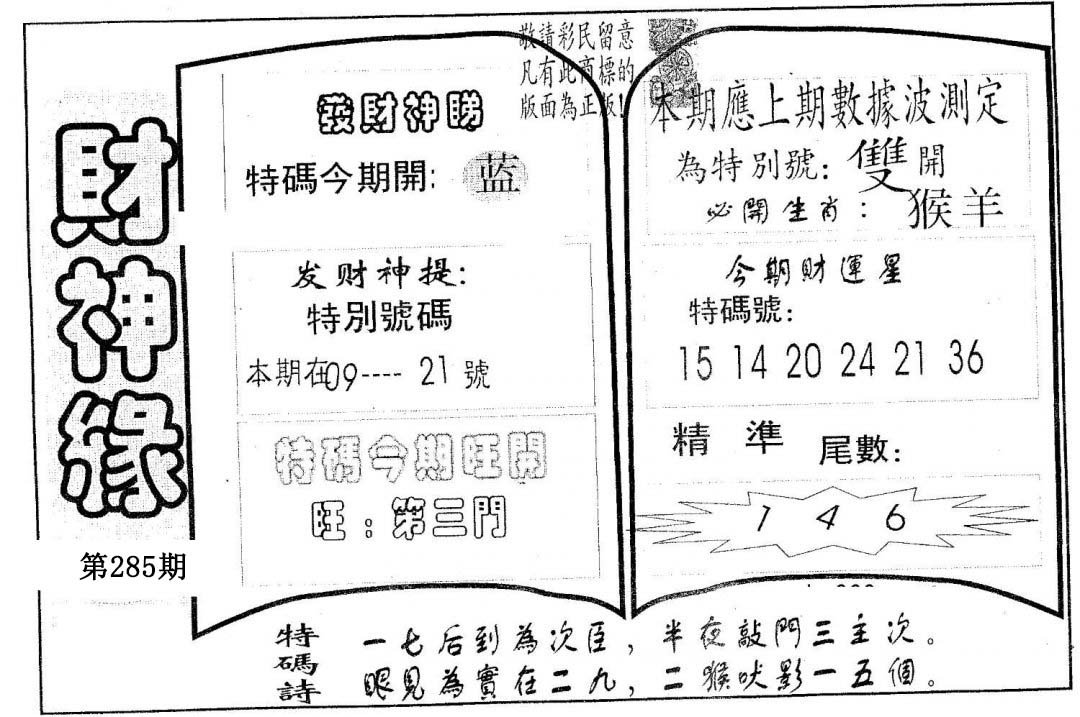 財神緣
第285期
敬請彩民留意
凡有此商標的
版面為正版!
發財神睇
特碼今期開: 蓝
发财神提:
特別號碼
本期在09---- 21號
特碼今期旺開
旺:第三門
本期應上期數據波測定
為特別號: 雙開
必開生肖: 猴羊
今期財運星
特碼號:
15 14 20 24 21 36
精準 尾數:
1 4 6
特碼詩
一七后到為次臣,半夜敲門三主次。
眼見為實在二九,二猴吠影一五個。